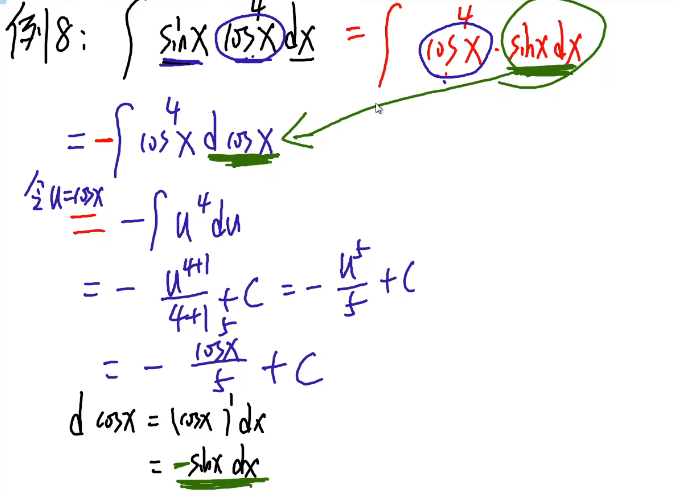 例8: ∫ sin x cos⁴x dx = ∫ cos⁴x · sin x dx
= -∫ cos⁴x d cos x
令u=cos x
= -∫ u⁴ du
= - u⁴⁺¹/(4+1) + C = - u⁵/5 + C
= - cos⁵x/5 + C
d cos x = (cos x)' dx
= -sin x dx